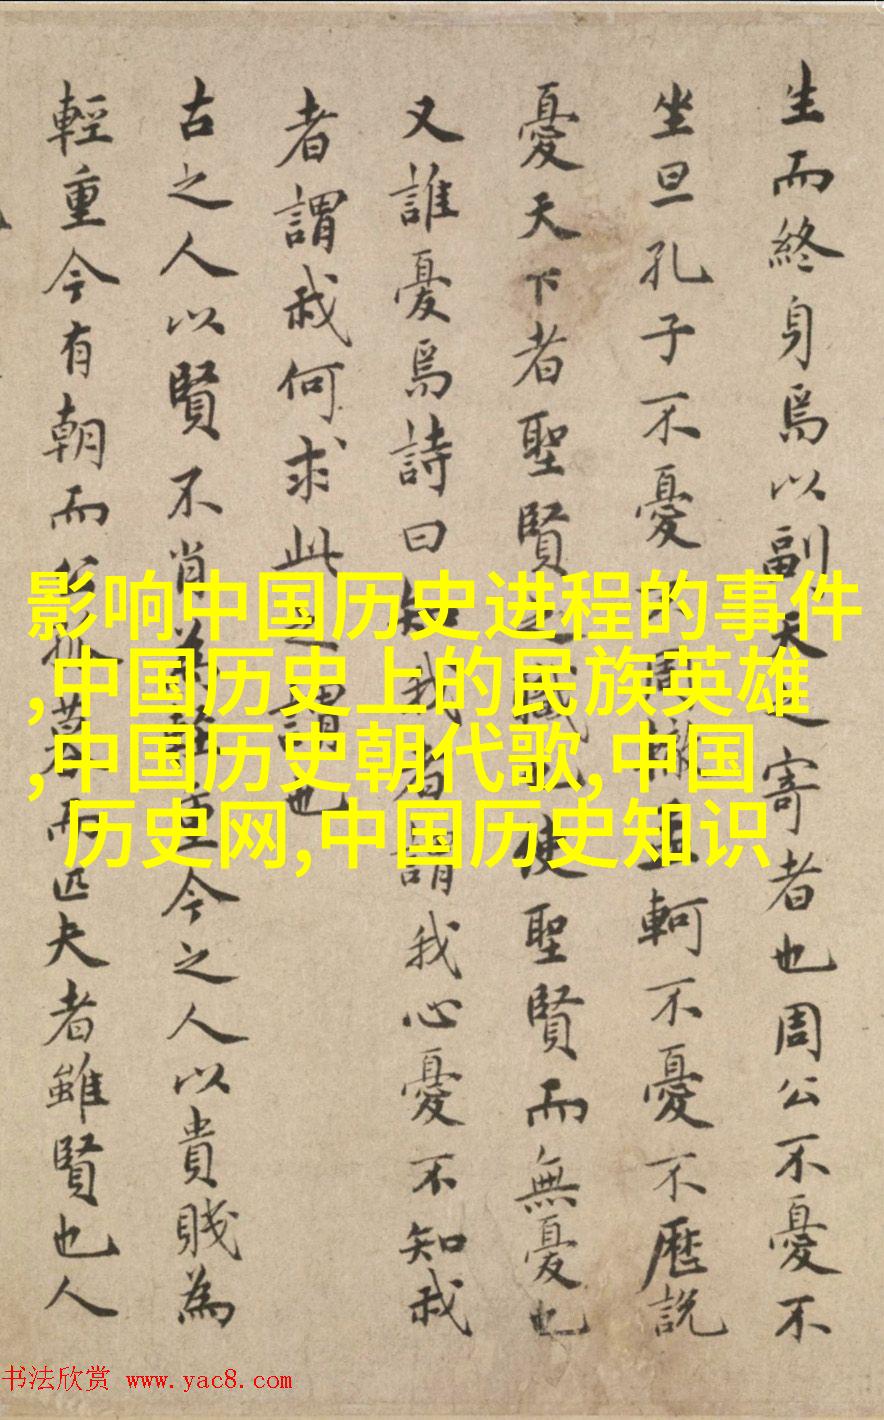 生而終身焉以副天之寄者也周公不憂不
坐旦孔子不憂不周轍孟軻不憂不歷說
憂天下者聖賢之職也使聖賢而無憂也
又誰憂焉詩曰知我者謂我心憂不知我
者謂我何求此之謂也
古之人以賢不肖為輕重今之人以貴賤為
輕重今有朝而公孤暮而匹夫者雖賢也人
影响中国历史进程的事件
,中国历史上的民族英雄
,中国历史朝代歌,中国
历史网,中国历史知识
书法欣赏 www.yac8.com